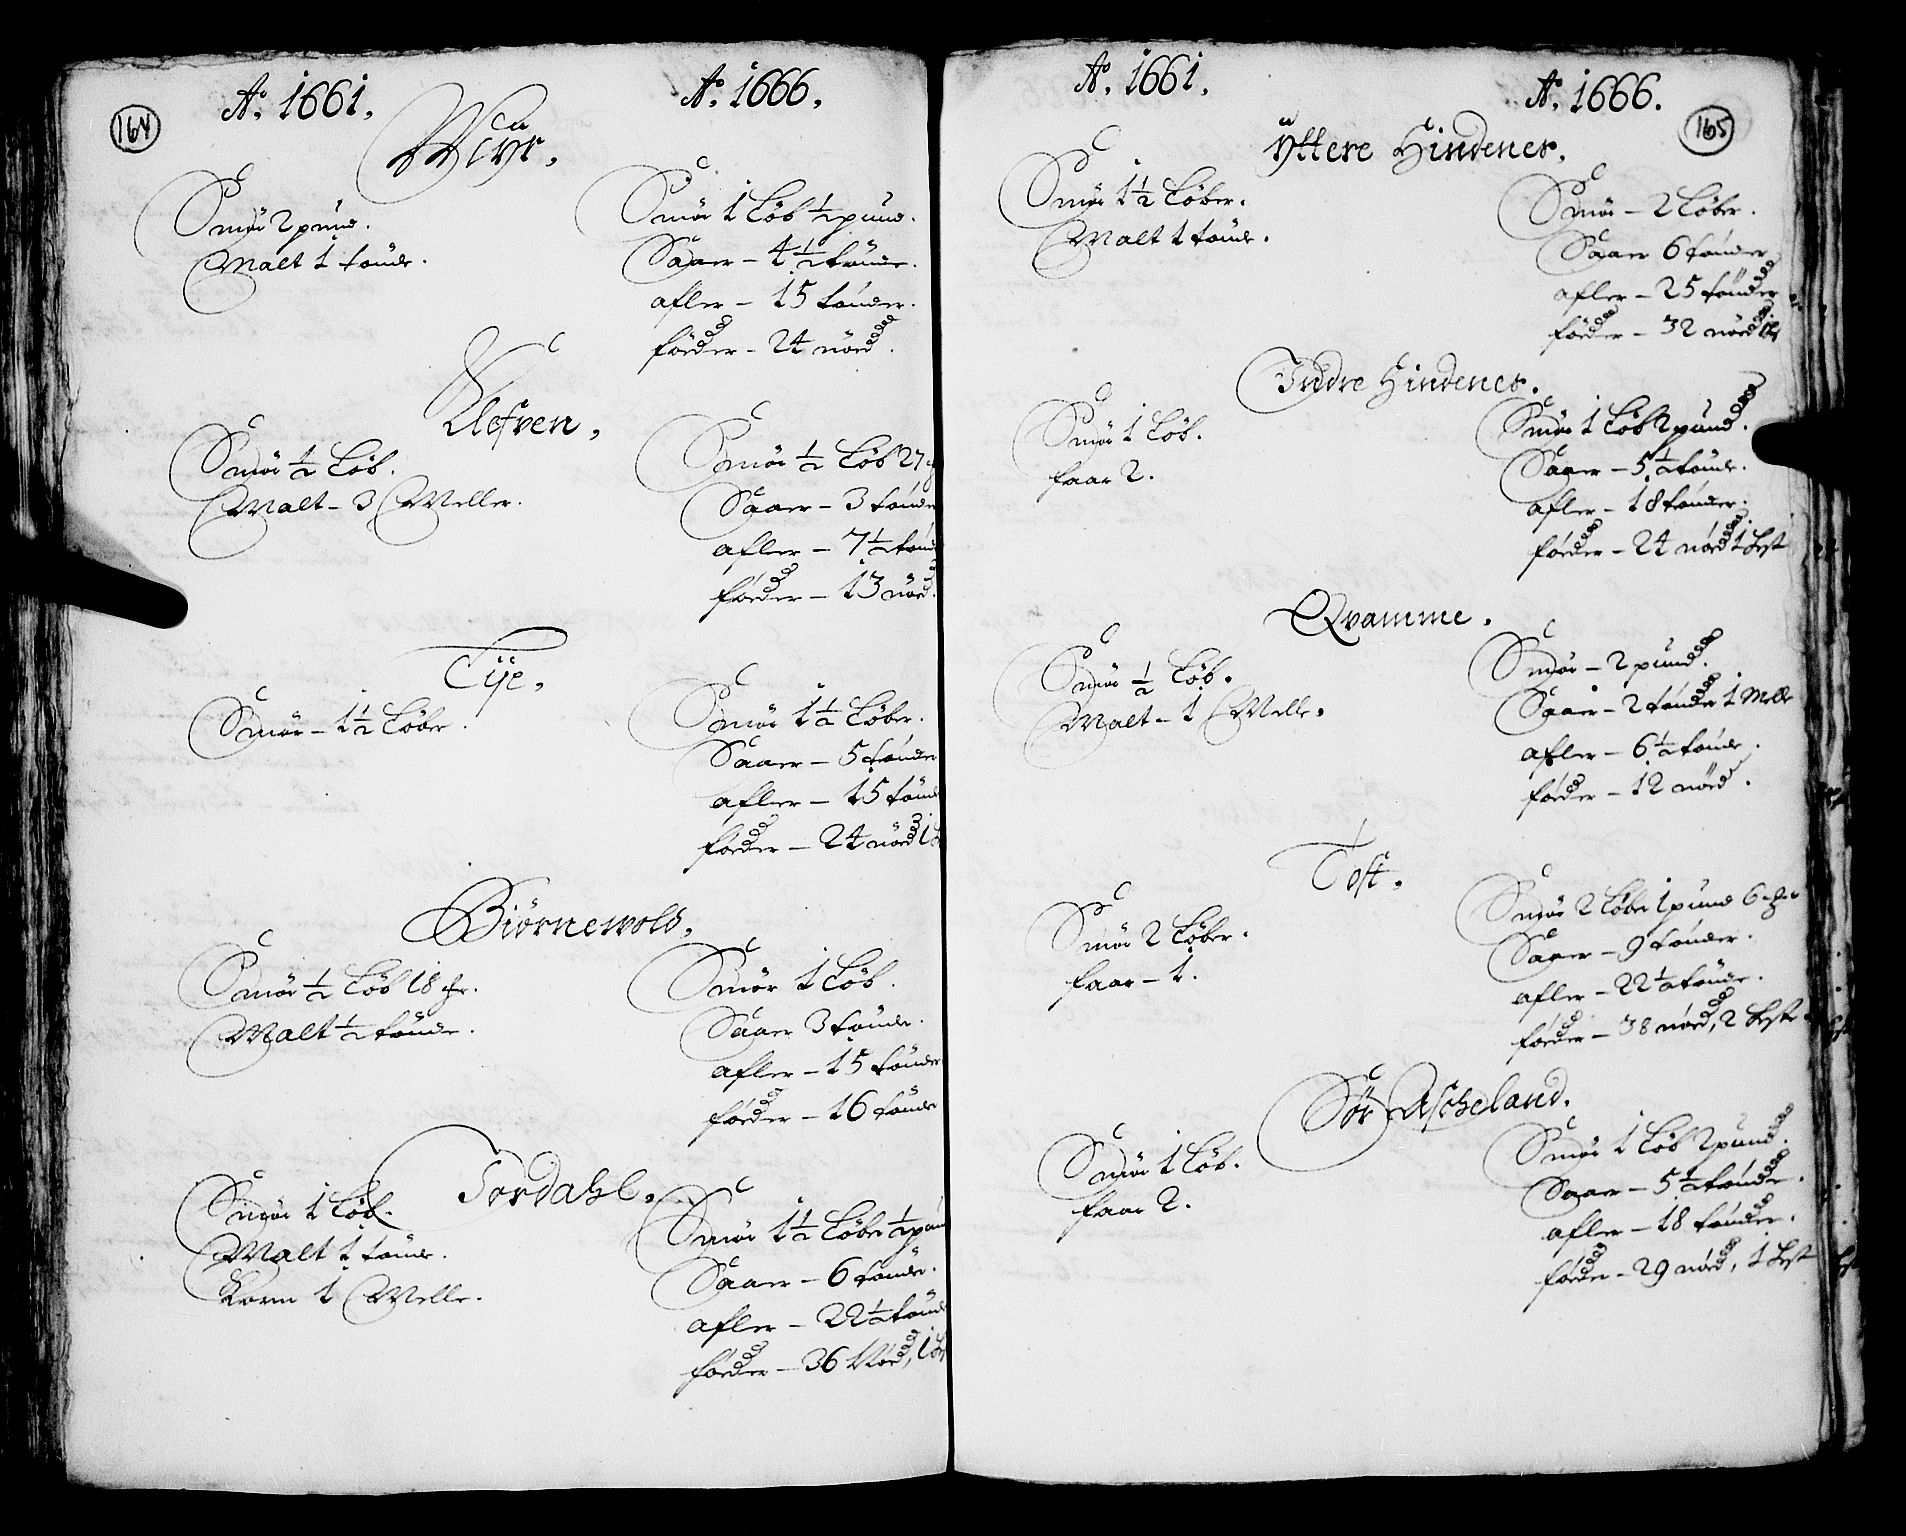 164
Ao. 1661.
Ao. 1666.
Smör 2 pund.
Malt 1 tönde.
Smör 1 Löb ½ pund.
Saaer - 4½ tönde.
afler - 15 tönder.
föder - 24 nöd.
Klefven.
Smör ½ Löb.
Malt - 3 Meller.
Smör ½ Löb 27
Saaer - 3 tönde
afler - 7½ tönd
föder - 13 nöd.
Tije.
Smör - 1½ Löber.
Smör 1½ Löber.
Saaer - 5 tönder
afler - 15 tönd
föder - 24 nöd 1
Biörnewold.
Smör ½ Löb 18
Malt ½ tönde.
Smör 1 Löb.
Saaer 3 tönde.
afler - 15 tönder
föder - 16 tönde
Tordahl.
Smör 1 Löb.
Malt 1 tönde.
Korn 1 Melle.
Smör 1½ Löber ½ pun
Saaer - 6 tönde.
afler - 22½ tönd
föder - 36 Nöd, 1
165
Ao. 1661.
Ao. 1666.
Yttere Hindenes.
Smör 1½ Löber.
Malt 1 tönde.
Smör - 2 Löber.
Saaer 6 tönder
afler - 25 tönder
föder - 32 nöd
Indre Hindenes.
Smör 1 Löb.
faar 2.
Smör 1 Löb 2 pund.
Saaer - 5½ tönde.
afler - 18 tönder.
föder - 24 nöd 1 hest
Qvamme.
Smör ½ Löb.
Malt - 1 Melle.
Smör - 2 pund.
Saaer - 2 tönder 1 Melle
afler - 6½ tönde.
föder - 12 nöd.
Toft.
Smör 2 Löber.
faar - 1.
Smör 2 Löber 1 pund 6
Saaer - 9 tönder.
afler - 22½ tönde.
föder - 38 nöd, 2 heste
Sör Ascheland.
Smör 1 Löb.
faar 2.
Smör 1 Löb 2 pund.
Saaer - 5½ tönde.
afler - 18 tönder.
föder - 29 nöd, 1 hest